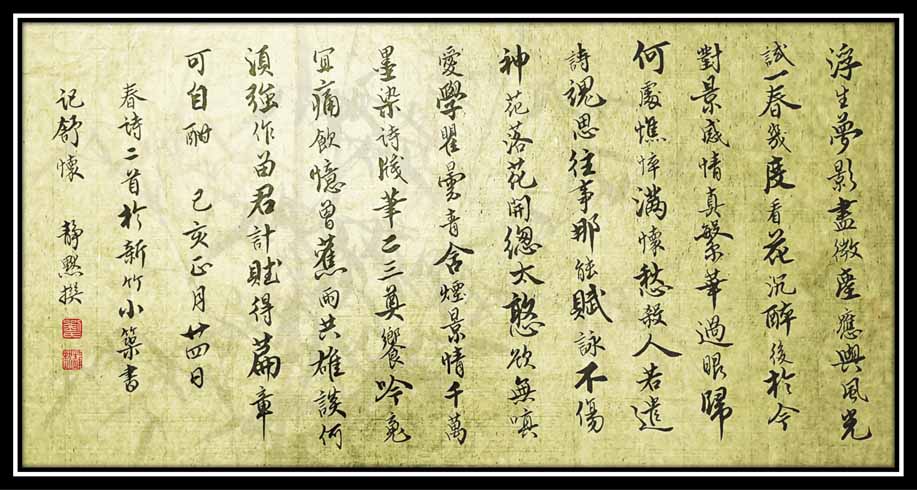 浮生夢影盡微塵應與風光
試一春幾度看花沉醉後於今
對景感情真繁華過眼歸
何處憔悴滿懷愁殺人若遣
詩魂思往事那能賦詠不傷
神花落花開總太憨欲無嗔
愛學瞿曇青舍煙景情千萬
墨染詩牋筆二三奠饗吟
宜痛飲憶曾蕉雨共雄談何
須強作留君計賦得篇章
可自酣 己亥正月廿四日
春詩二首於新竹小築書
記舒懷 靜默撰